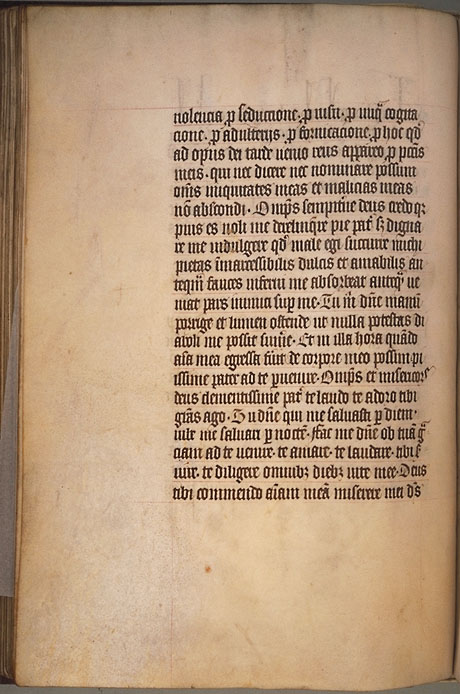 uiolencia ꝑ seductione · ꝑ uisu · ꝑ iniq̄ cogita
cione · ꝑ adulterijs · ꝑ fornicacione ꝑ hoc qd̄
ad opus dei tarde uenio reus appareo ꝑ pctīs
meis · qui nec dicere nec nominare possum
om̄s iniquitates meas et malicias meas
nō abscondi · Om̄ps sempitne deus credo qꝫ
pius es noli me derelinq̄re pie pat sꝫ digna
re me indulgere qd̄ male egi succurre michi
pietas dulcis et amabilis an
teq̄m fauces inferni me absorbeat anteq̄ ue
niat pars inimici sup me · Tu m̄ dn̄e manū
porrige et lumen ostende ut nulla potestas di
aboli me possit · Et in illa hora quādo
aīa mea egressa fūit de corpore meo possim pi
issime pater ad te ꝑuenire · Om̄ps et misericors
deus clementissime pat te laudo te adoro tibi
grās ago · Tu dn̄e qui me saluasti ꝑ diem ·
me saluari ꝑ noctē · Fac me dn̄e ob tuā g̃
ciam ad te uenire · te amare · te laudare · tibi
uire · te diligere omnibꝫ diebꝫ uite mee · Deus
tibi commendo aīam meā miserere mei ds̄